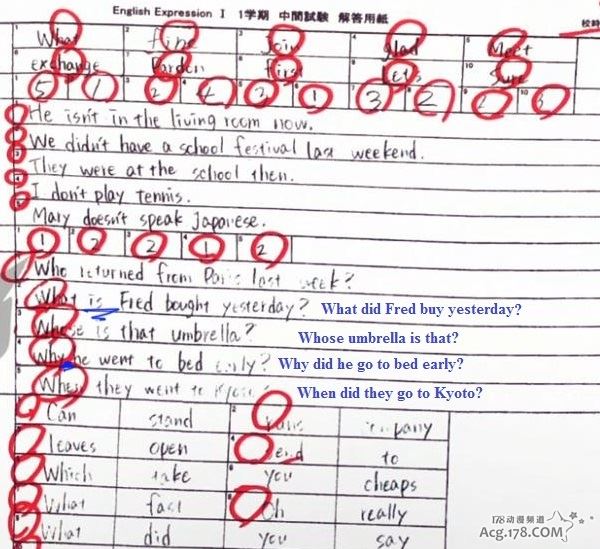 English Expression I 1学期 中間試験 解答用紙
1 What 2 fine 3 Join 4 glad 5 Meet
6 exchange 7 Parden 8 first 9 Let's 10 Sure
⑤ ① ② ④ ② ① ③ ② ② ③
He isn't in the living room now.
We didn't have a school festival last weekend.
They were at the school then.
I don't play tennis.
Mary doesn't speak Japanese.
① ② ② ① ②
Who returned from Paris last week?
What is Fred bought yesterday? What did Fred buy yesterday?
Whose is that umbrella? Whose umbrella is that?
Why he went to bed early? Why did he go to bed early?
When they went to Kyoto? When did they go to Kyoto?
Can stand
leaves open send to
Which take you cheaps
What fast Oh really
What did you say
178动漫频道
Acg.178.COM